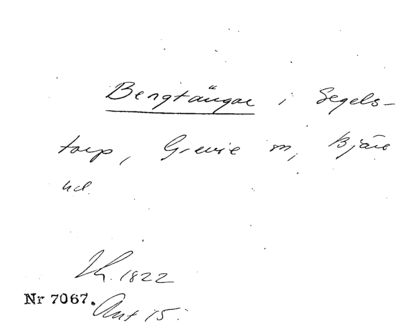 Bengtängar i Segels-
torp, Grevie sn, Bjäre
hd.
Lh. 1822
Nr 7067.
Ant 15.